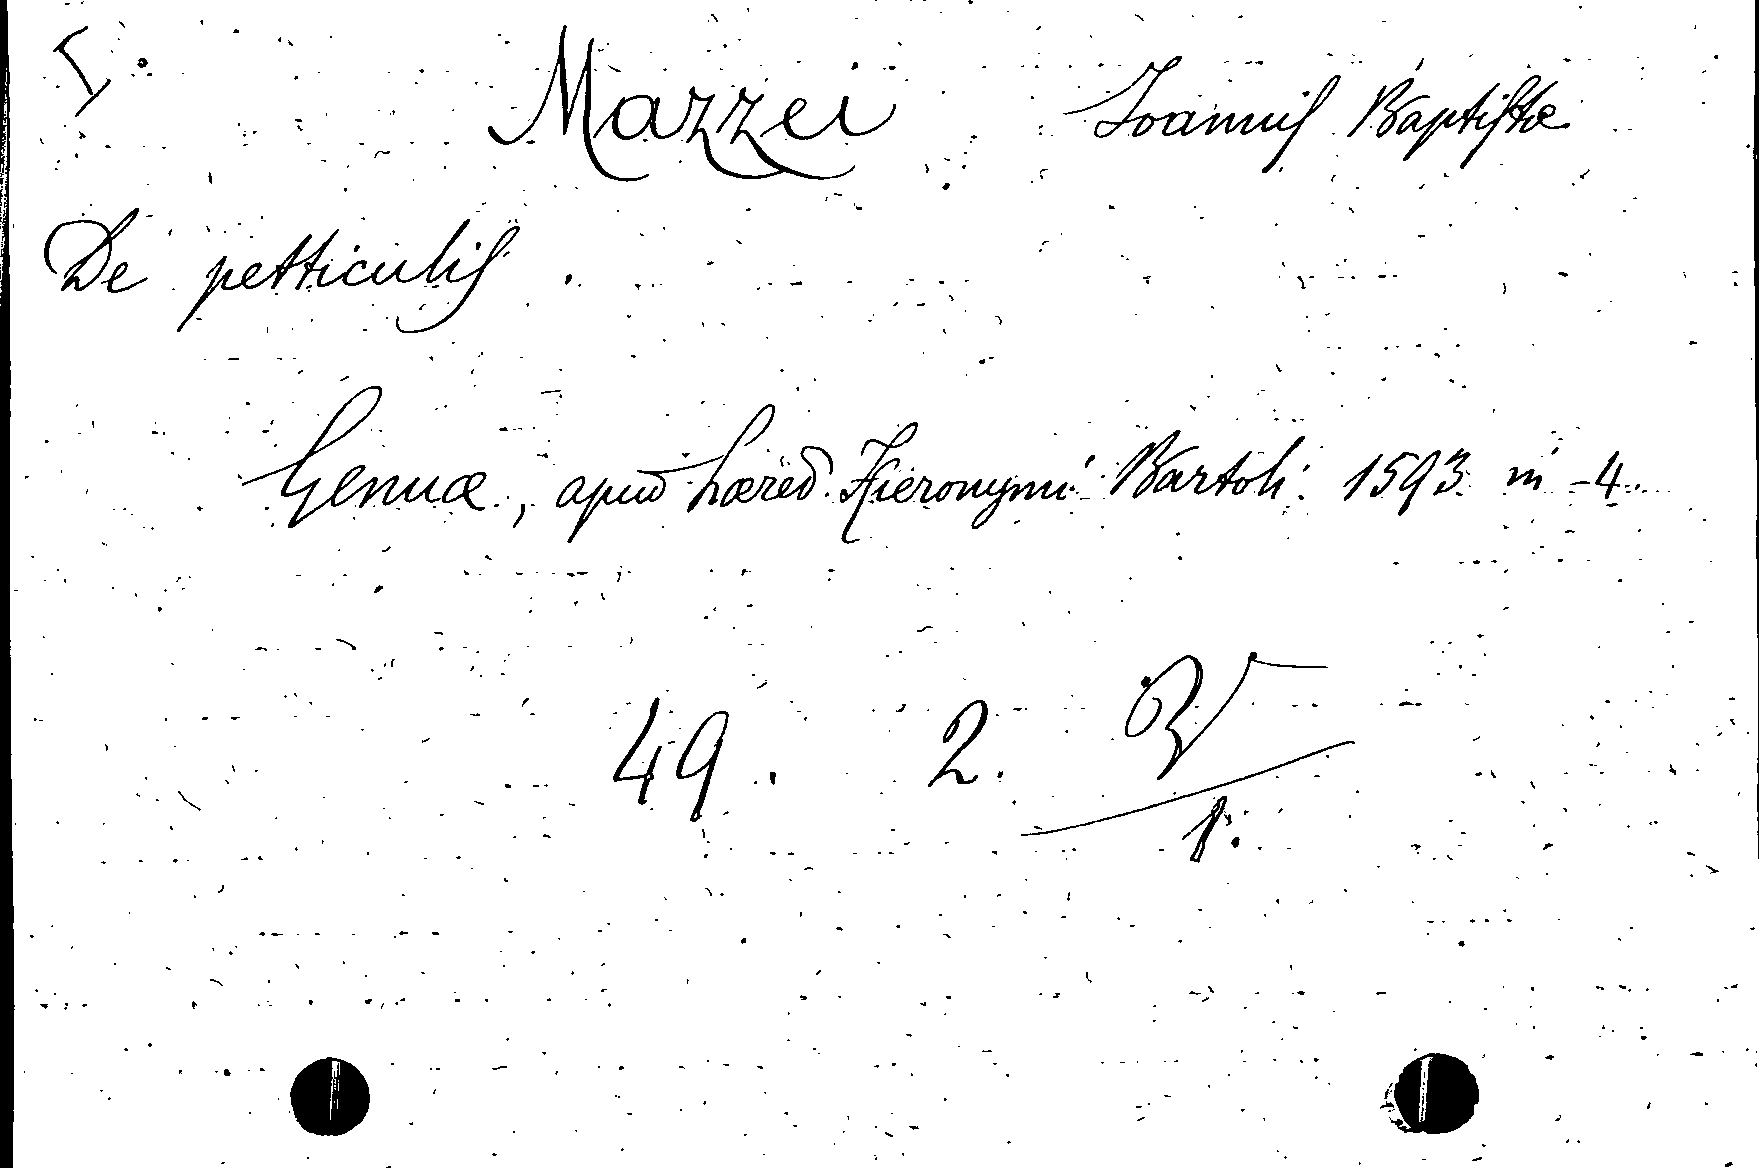 Mazzei Joannis Baptistæ
De petticulis.
Genuæ, apud hæred. Hieronymi Bartoli. 1593 in -4.
49. 2.